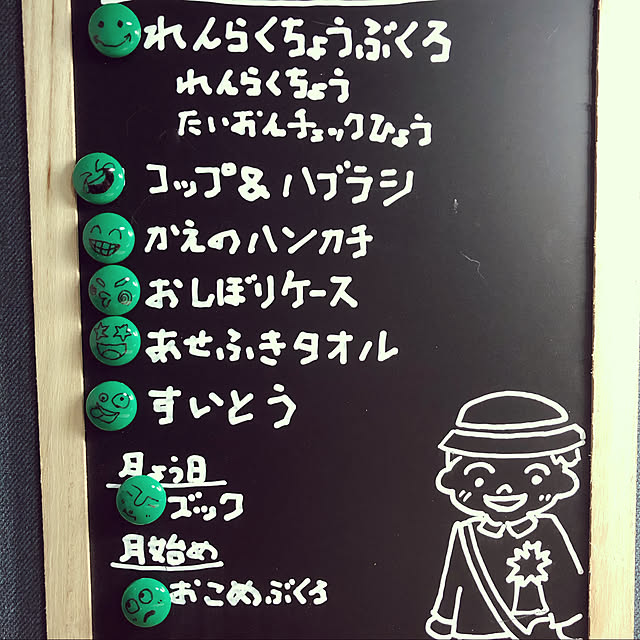 れんらくちょうぶくろ
れんらくちょう
たいおんチェックひょう
コップ&ハブラシ
かえのハンカチ
おしぼりケース
あせふきタオル
すいとう
月よう日
ズック
月始め
おこめぶくろ